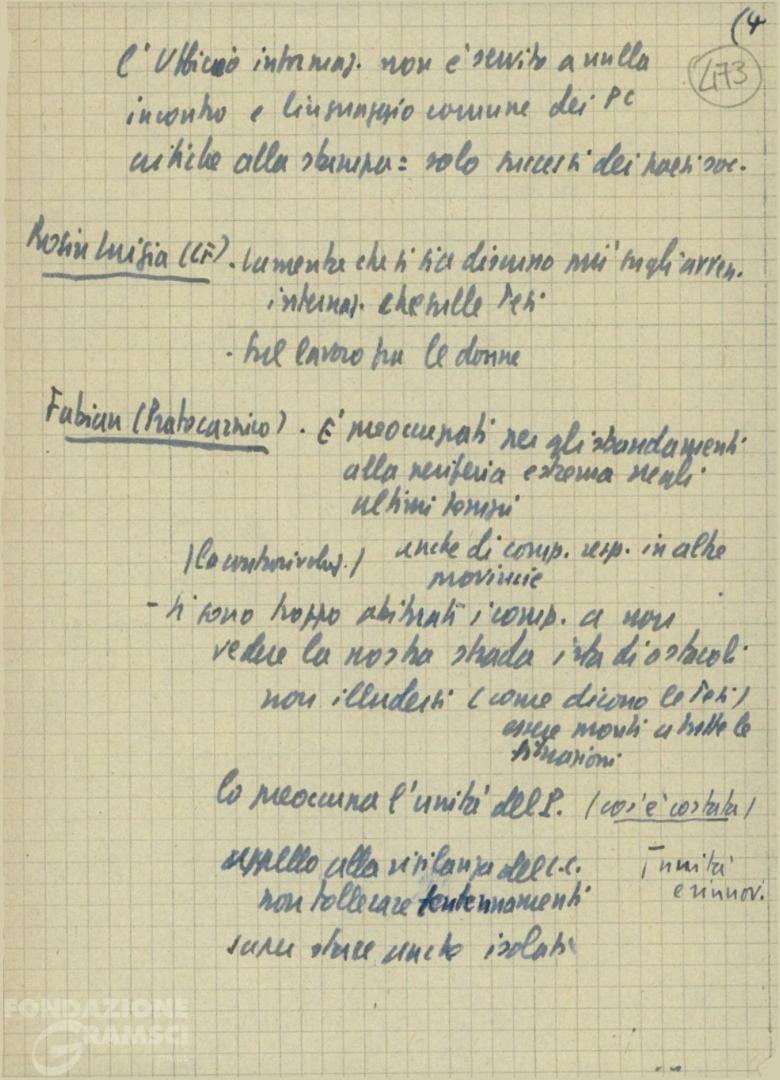 (4
473
l'Ufficio informaz. non è servito a nulla
incontro e linguaggio comune dei PC
critiche alla stampa = solo successi dei paesi soc.
Rosin Luigia (CF). Lamenta che si sia discusso più sugli avven.
internaz. che sulle Tesi
. sul lavoro fra le donne
Fabian (Pratocarnico). È preoccupati per gli sbandamenti
alla periferia estrema negli
ultimi tempi
(la controrivoluz.) anche di comp. resp. in altre
provincie
- si sono troppo abituati i comp. a non
vedere la nostra strada irta di ostacoli
non illudersi (come dicono le Tesi)
essere pronti a tutte le
situazioni
lo preoccupa l'unità del P. (cos'è costata)
appello alla vigilanza del C.C. unità
e rinnov.
non tollerare tentennamenti
saper stare anche isolati
FONDAZIONE
GRAMSCI